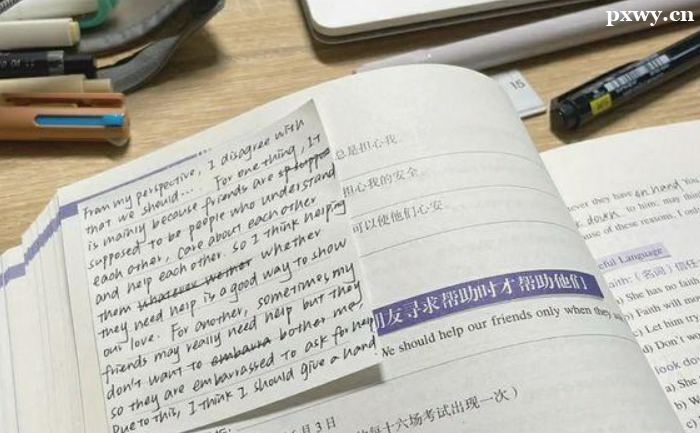 pxwy.cn
From my perspective, I disagree with
that we should.... For one thing, It
is mainly because friends are suppose
supposed to be people who understand
each other, care about each other
and help each other. So I think helping
them whatever wether whether
they need help is a good way to show
our love. For another, sometimes my
friends may really need help but they
don't want to embarra bother me,
so they are embarrassed to ask for help
Due to this, I think I should give a hand
总是担心我
担心我的安全
可以使他们心安
朋友寻求帮助时才帮助他们
We should help our friends only when they
月3日
每十六场考试出现一次）
15
ever they have on hand You
down to him; may thi
use of these reasons. I a
ful Language
aith: (名词) 信任
She has no fai
Faith will
Let him try
Don't wo
look dow
She